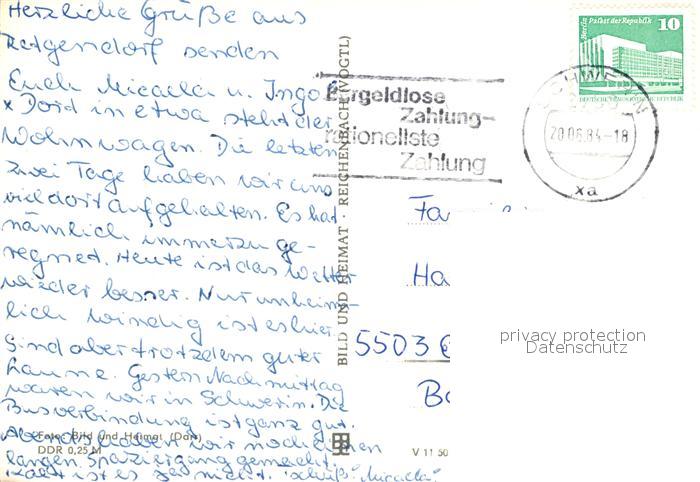 Herzliche Grüße aus
Retgendorf senden
Euch Micaela u. Ingo
x Dort in etwa steht der
Wohnwagen. Die letzten
zwei Tage haben wir uns
viel dort aufgehalten. Es hat
nämlich immerzu ge-
regnet. Heute ist das Wetter
wieder besser. Nur unheim-
lich windig ist es hier.
Sind aber trotzdem guter
Laune. Gestern Nachmittag
waren wir in Schwerin. Die
Busverbindung ist ganz gut.
Abends haben wir noch einen
langen Spaziergang gemacht.
Kalt ist es gar nicht. Tschüß! Micaela
Foto: Bild und Heimat (Dorr)
DDR 0,25 M
V 11 50
BILD UND HEIMAT · REICHENBACH (VOGTL)
Bargeldlose
Zahlung-
rationellste
Zahlung
SCHWERIN
20.06.84-18
xa
Berlin Palast der Republik
10
DEUTSCHE DEMOKRATISCHE REPUBLIK
Fa
Ha
5503
privacy protection
Datenschutz